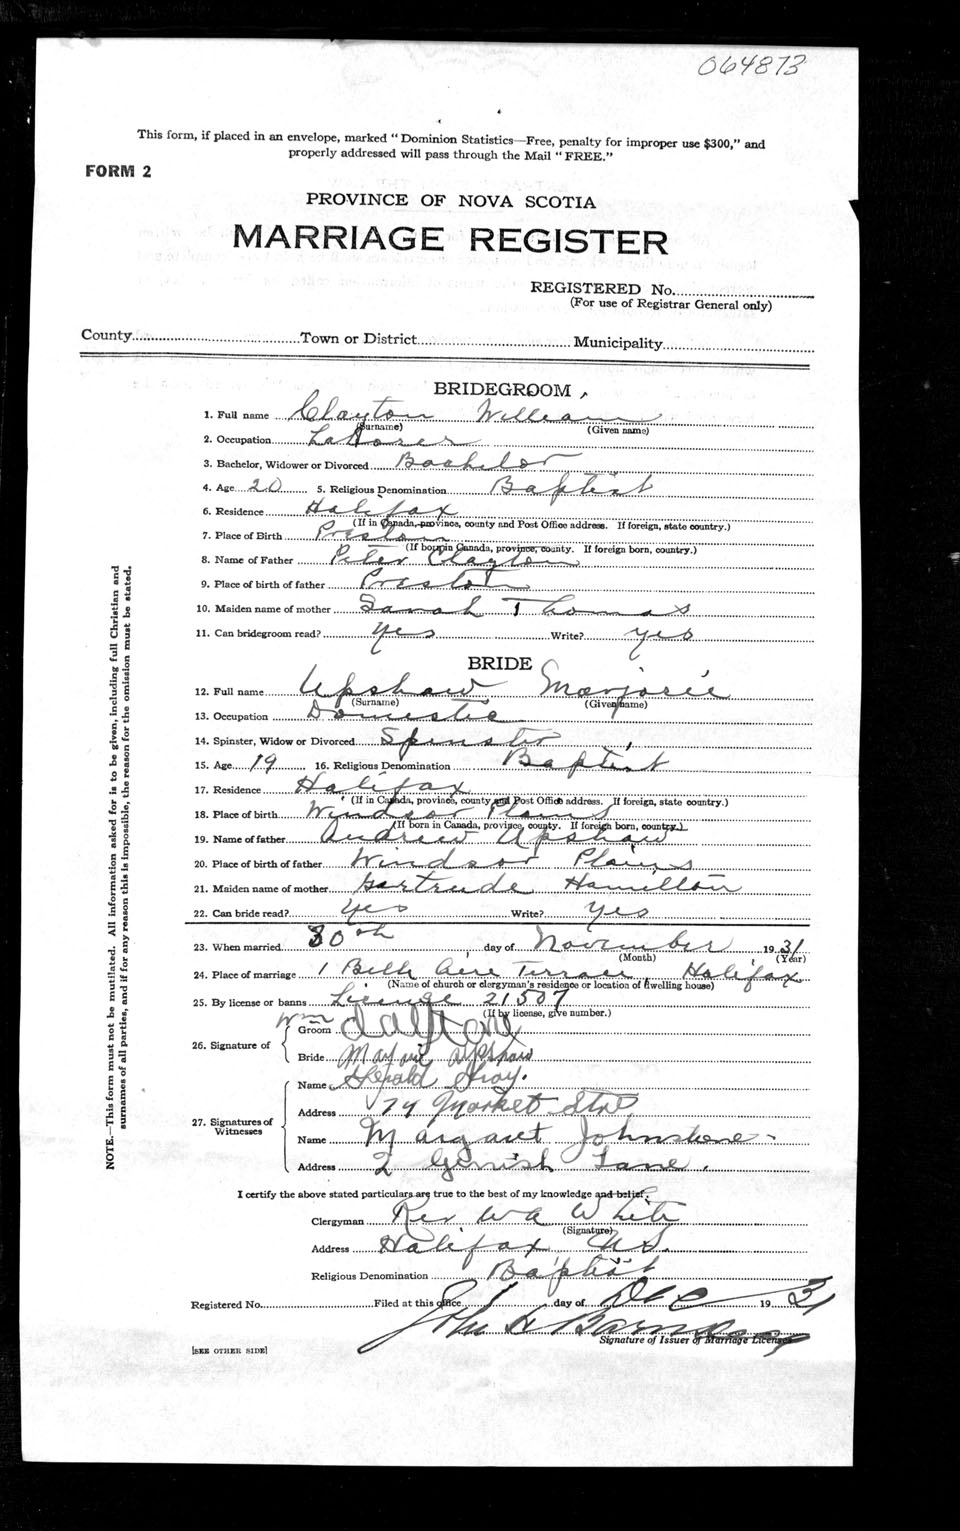 064873
This form, if placed in an envelope, marked "Dominion Statistics—Free, penalty for improper use $300," and
properly addressed will pass through the Mail "FREE."
FORM 2
PROVINCE OF NOVA SCOTIA
MARRIAGE REGISTER
REGISTERED No.
(For use of Registrar General only)
County Town or District Municipality
BRIDEGROOM
1. Full name Clayton William
(Surname) (Given name)
2. Occupation Laborer
3. Bachelor, Widower or Divorced Bachelor
4. Age 20 5. Religious Denomination Baptist
6. Residence Halifax
(If in Canada, province, county and Post Office address. If foreign, state country.)
7. Place of Birth Preston
(If born in Canada, province, county. If foreign born, country.)
8. Name of Father Peter Clayton
9. Place of birth of father Preston
10. Maiden name of mother Sarah Thomas
11. Can bridegroom read? yes Write? yes
BRIDE
12. Full name Upshaw Marjorie
(Surname) (Given name)
13. Occupation Domestic
14. Spinster, Widow or Divorced Spinster
15. Age 19 16. Religious Denomination Baptist
17. Residence Halifax
(If in Canada, province, county and Post Office address. If foreign, state country.)
18. Place of birth Windsor Plains
(If born in Canada, province, county. If foreign born, country.)
19. Name of father Andrew Upshaw
20. Place of birth of father Windsor Plains
21. Maiden name of mother Gartrude Hamilton
22. Can bride read? yes Write? yes
23. When married 30th day of November 1931
(Month) (Year)
24. Place of marriage 1 Belle Aire Terrace, Halifax
(Name of church or clergyman's residence or location of dwelling house)
25. By license or banns License 21507
(If by license, give number.)
26. Signature of
Groom Wm
Bride Marjorie Upshaw
27. Signatures of Witnesses
Name Gerald
Address 74 Market Str
Name Margaret Johnstone
Address 2 Gerrish Lane.
I certify the above stated particulars are true to the best of my knowledge and belief:
Clergyman Rev W A White
(Signature)
Address Halifax N.S.
Religious Denomination Baptist
Registered No. Filed at this office 1 day of Dec 1931
John A Barnaby
Signature of Issuer of Marriage Licenses
[SEE OTHER SIDE]
NOTE.—This form must not be mutilated. All information asked for is to be given, including full Christian and
surnames of all parties, and if for any reason this is impossible, the reason for the omission must be stated.